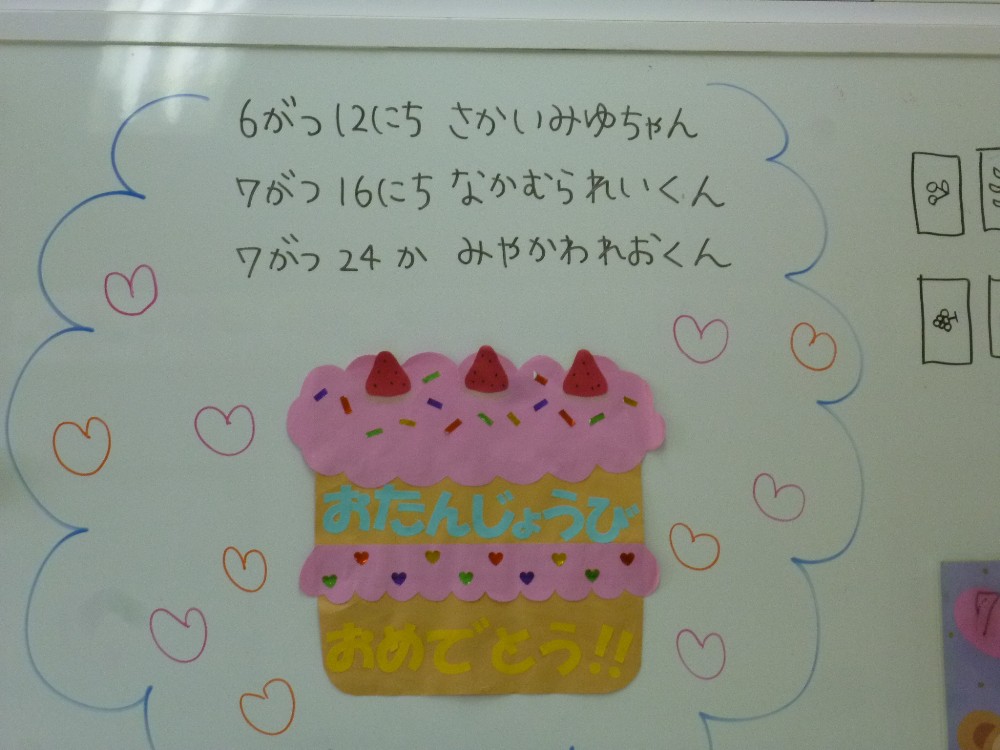 6がつ12にち さかいみゆちゃん
7がつ16にち なかむられいくん
7がつ24か みやかわれおくん
おたんじょうび
おめでとう!!
7